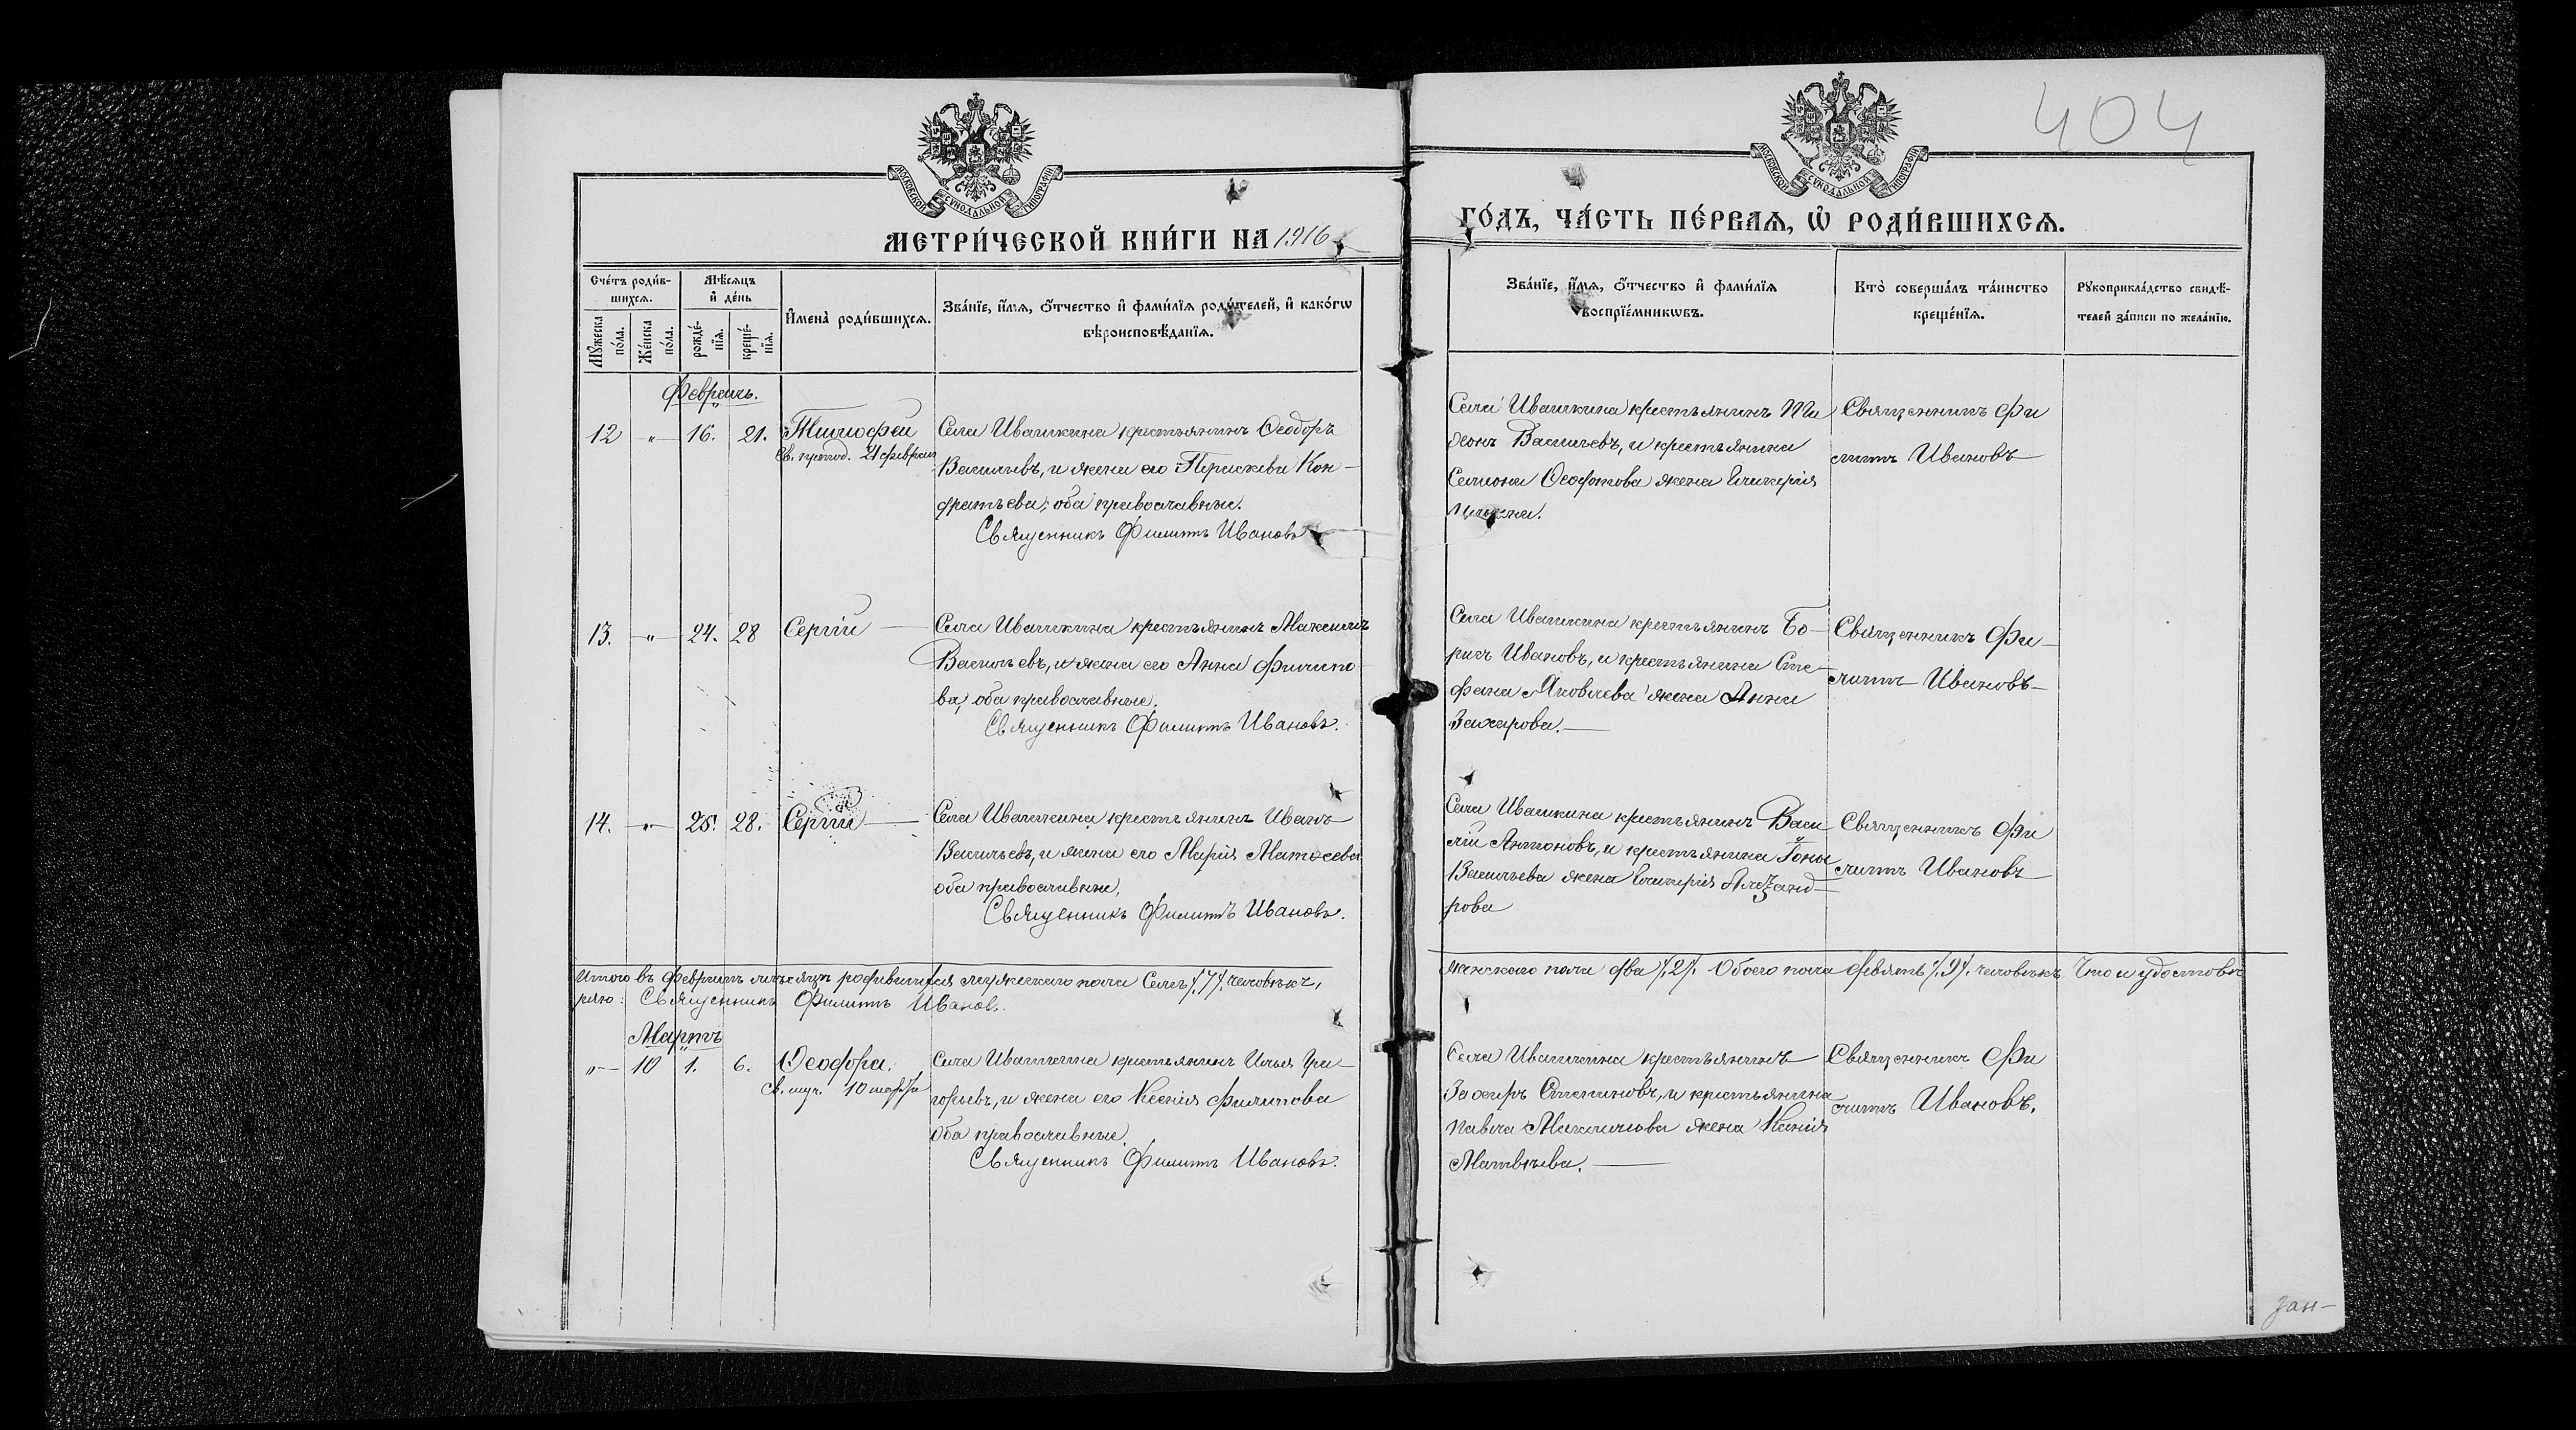 404
МОСКОВСКОЙ СѴНОДАЛЬНОЙ ТИПОГРАФІИ
МОСКОВСКОЙ СѴНОДАЛЬНОЙ ТИПОГРАФІИ
МЕТРИ́ЧЕСКОЙ КНИ́ГИ НА 1916
ГО́ДЪ, ЧА́СТЬ ПЕ́РВАѦ, Ѡ҆ РОДИ́ВШИХСѦ.
Сче́тъ роди́в-
шихсѧ.
Мꙋ́жеска
по́ла.
Же́нска
по́ла.
Мѣ́сѧцъ
и҆ де́нь
рожде́-
нїѧ.
креще́-
нїѧ.
И҆мена̀ роди́вшихсѧ.
Зва́нїе, и҆́мѧ, ѻ҆́тчество и҆ фами́лїѧ роди́телей, и҆ како́гѡ
вѣроисповѣ́данїѧ.
Зва́нїе, и҆́мѧ, ѻ҆́тчество и҆ фами́лїѧ
воспрїе́мникѡвъ.
Кто̀ соверша́лъ та́инство
креще́нїѧ.
Рꙋкоприкла́дство свидѣ́-
телей за́писи по жела́нїю.
Февраль.
12 " 16. 21. Тимофей
Св. препод. 21 февраля
Села Ивашкина крестьянинъ Ѳеодоръ
Васильевъ, и жена его Параскева Кон-
дратьева; оба православные.
Священникъ Филиппъ Ивановъ
Села Ивашкина крестьянинъ Ти
хонъ Васильевъ, и крестьянина
Семиона Ѳеофонтова жена Гликерія
Священникъ Фи
липпъ Ивановъ
13. " 24. 28 Сергій
Села Ивашкина крестьянинъ Максимъ
Васильевъ, и жена его Анна Филиппо
ва, оба православные.
Священникъ Филиппъ Ивановъ.
Села Ивашкина крестьянинъ Бо-
рисъ Ивановъ, и крестьянина Сте-
фана Яковлева жена Анна
Захарова.
Священникъ Фи-
липпъ Ивановъ
14. " 25. 28. Сергій
Села Ивашкина крестьянинъ Иванъ
Васильевъ, и жена его Марія Матѳеева
оба православные,
Священникъ Филиппъ Ивановъ.
Села Ивашкина крестьянинъ Васи
лій Антоновъ, и крестьянина Іоны
Васильева жена Гликерія Алеѯанд-
рова
Священникъ Фи
липпъ Ивановъ
Итого въ Февралѣ мѣсяцѣ родившихся мужескаго пола Семь /.7/. человѣкъ,
женскаго пола два /.2/. Обоего пола девять /.9/. человѣкъ Что и удостовѣ
ряю: Священникъ Филиппъ Ивановъ.
Мартъ
" 10 1. 6. Ѳеодора.
Св. муч. 10 марта
Села Ивашкина крестьянинъ Илья Гри-
горьевъ, и жена его Ксенія Филиппова
оба православные.
Священникъ Филиппъ Ивановъ.
Села Ивашкина крестьянинъ
Захаръ Степановъ, и крестьянина
Павла Михаилова жена Ксенія
Матвѣева.
Священникъ Фи
липпъ Ивановъ.
зан-